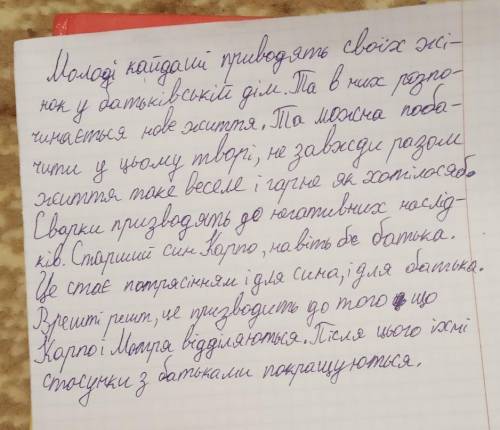 Молоді кайдаші приводять своїх жі-
нок у батьківській дім. Та в них розпо-
чинається нове життя. Та можна поба-
чити у цьому творі, не завжди разом
життя таке веселе і гарне як хотілося б.
Сварки призводять до негативних наслід-
ків. Старший син Карпо, навіть бє батька.
Це стає потрясінням і для сина, і для батька.
Врешті решт, це призводить до того що
Карпо і Мотря відділяються. Після цього їхні
стосунки з батьками покращуються.